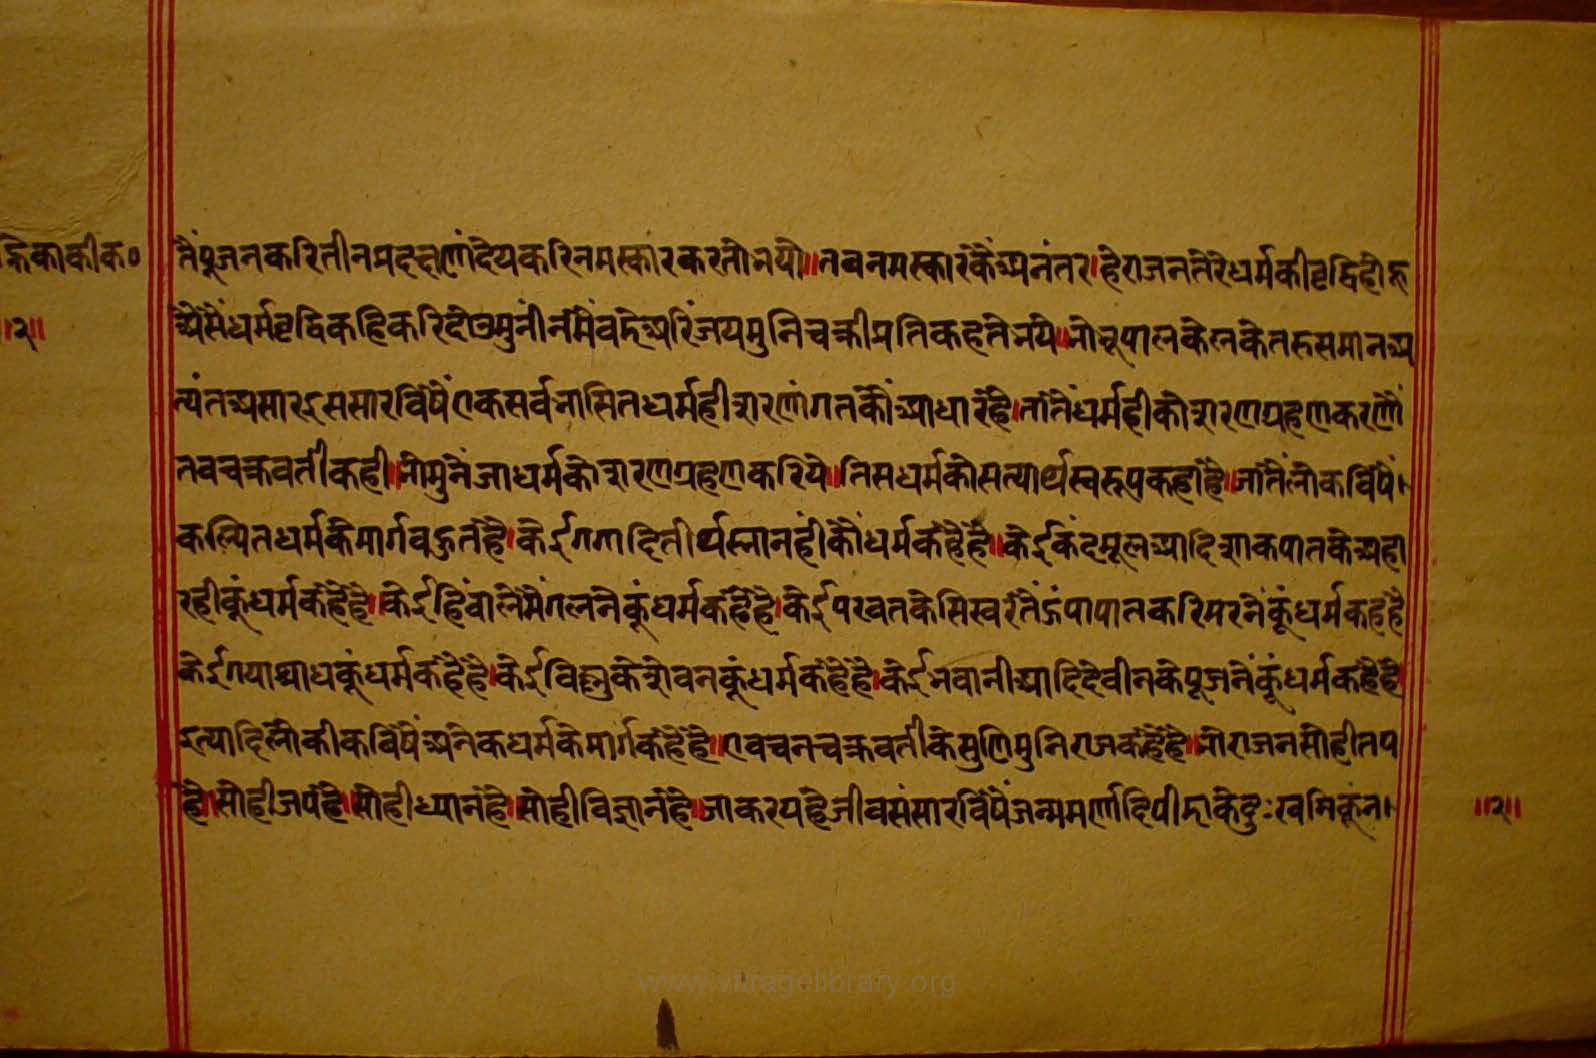 ह्निकाकीक०
॥२॥
तैंपूजनकरितीनप्रदक्षणांदेयकरिनमस्कारकरतोभयौ॥तबनमस्कारकैंअनंतर।हेराजनतेरेधर्मकीवृद्धिहोहु
अैसैंधर्मवृद्धिकहिकरिदोऊमुनीनमैंवडेअरिंजयमुनिचक्रीप्रतिकहतेभये॥भोभूपालकेलकेतरुसमानअ
त्यंतअसारइससंसारविषैंएकसर्वज्ञभासितधर्महीशरणांगतकौंआधारहै।तातैंधर्महीकोशरणग्रहणकरणौं
तबचक्रवर्तीकही।भोमुनेजाधर्मकोशरणग्रहणकरिये॥तिसधर्मकोसत्यार्थस्वरूपकहाहै॥जातैंलोकविषैं।
कल्पितधर्मकेमार्गबहुतहै।केईगंगादितीर्थस्नानहीकौंधर्मकहैंहै॥केईकंदमूलआदिशाकपातकेअहा
रहीकूंधर्मकहैंहै।केईहिंवालेमैंगलनेकूंधर्मकहैंहै।केईपरवतकेसिखरतैंझंपापातकरिमरनेकूंधर्मकहैंहै
केईगयाश्राधकूंधर्मकहैंहै।केईविष्णुकेशेवनकूंधर्मकहैंहै।केईभवानीआदिदेवीनकेपूजनेंकूंधर्मकहैंहै
इत्यादिलौकीकविषैंअनेकधर्मकेमार्गकहैंहै॥एवचनचक्रवर्तीकेसुणिमुनिराजकहैंहै॥भोराजनसोहीतप
है।सोहीजपहै।सोहीध्यानहै।सोहीविज्ञानहै।जाकरयहजीवसंसारविषैंजन्ममर्णादिपीडाकेदुःखनिकूंन।
॥२॥
www.vitragelibrary.org